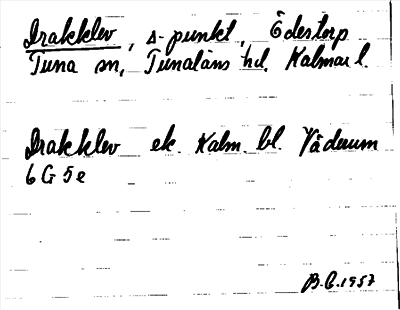 Drakklev, s-punkt, Ödestorp
Tuna sn, Tunaläns hd. Kalmar l.
Drakklev ek. Kalm. bl. Väderum
6 G 5 e
B.G. 1957